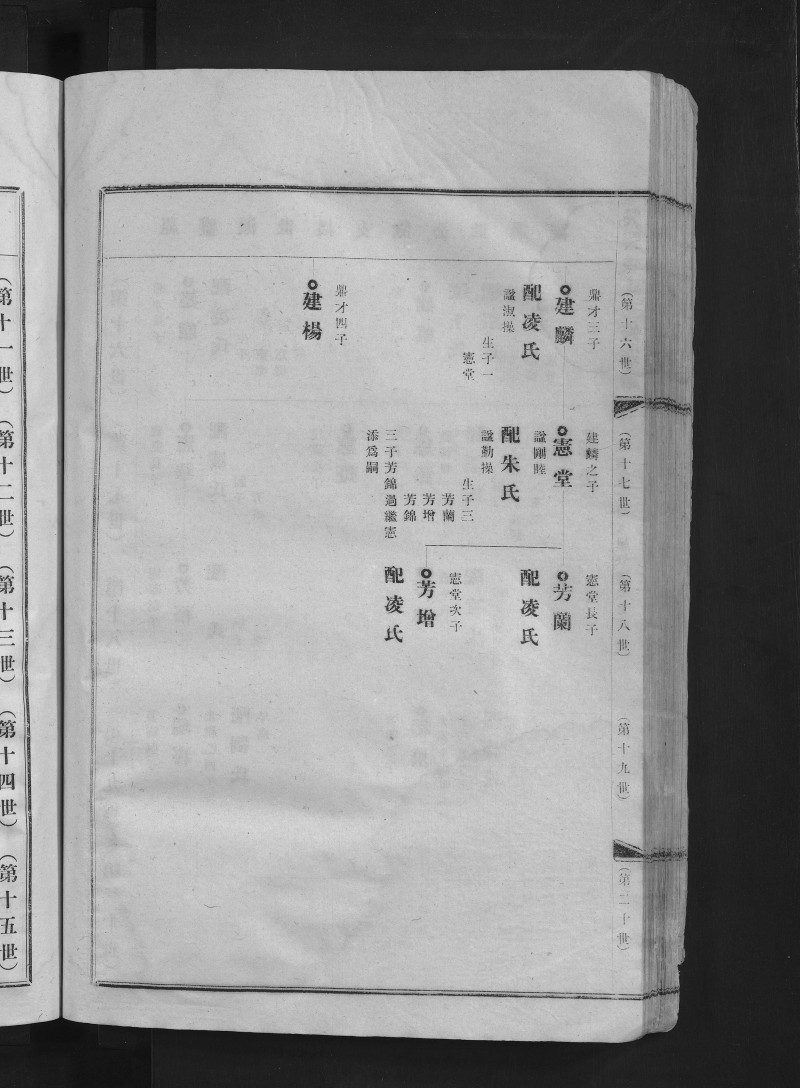 （第十六世）
（第十七世）
（第十八世）
（第十九世）
（第二十世）
鼎才三子
建麟
配凌氏
謚淑操
生子一
憲堂
鼎才四子
建楊
建麟之子
憲堂
謚剛睦
配朱氏
謚勤操
生子三
芳蘭
芳增
芳錦
三子芳錦過繼憲
添為嗣
憲堂長子
芳蘭
配凌氏
憲堂次子
芳增
配凌氏
（第十一世）
（第十二世）
（第十三世）
（第十四世）
（第十五世）